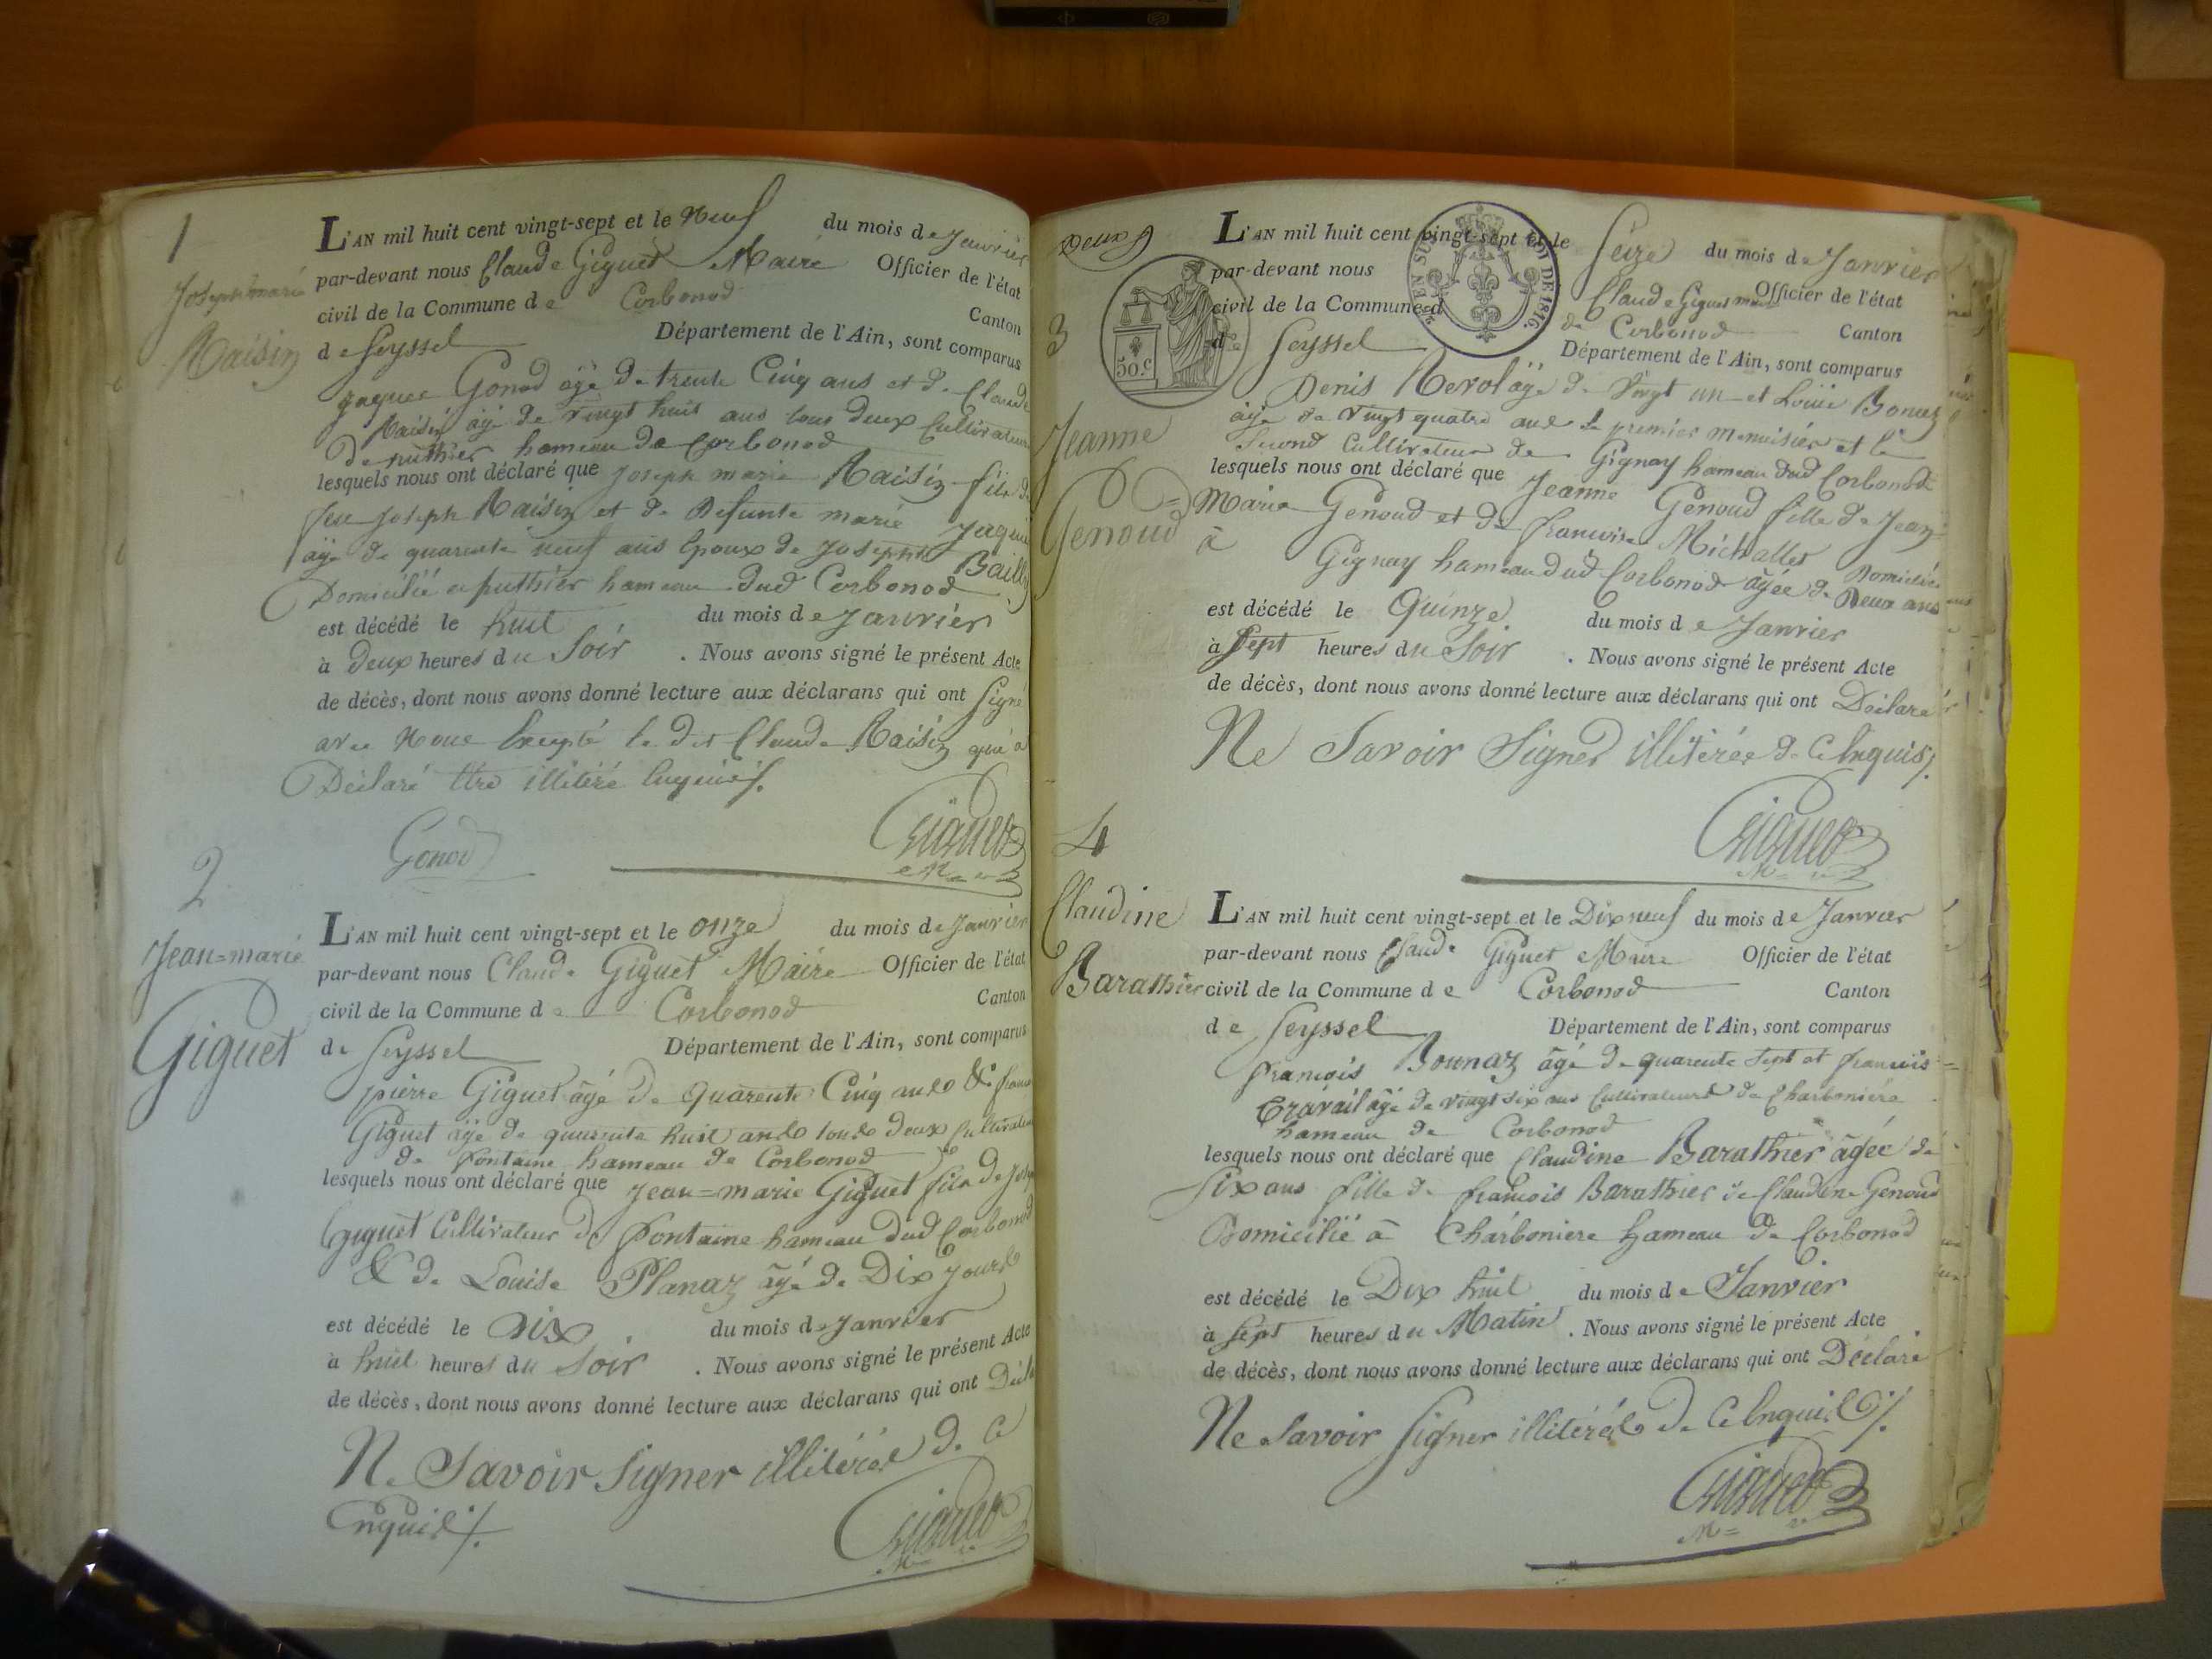 1
Joseph marie
Raisin
L'AN mil huit cent vingt-sept et le Neuf du mois de Janvier
par-devant nous Claude Giguet Maire Officier de l'état
civil de la Commune de Corbonod Canton
de Seyssel Département de l'Ain, sont comparus
Jaques Gonod âgé de trente Cinq ans et de Claude
Raisin âgé de vingt huit ans tous deux Cultivateurs
de puthier hameau de Corbonod
lesquels nous ont déclaré que Joseph marie Raisin fils de
feu Joseph Raisin et de Defunte marie Jaquin
âgé de quarente neuf ans Epoux de Josephte Bailly
Domicilié a puthier hameau dud Corbonod
est décédé le huit du mois de Janvier
à deux heures du Soir . Nous avons signé le présent Acte
de décès, dont nous avons donné lecture aux déclarans qui ont Signé
avec Nous Excepté le dit Claude Raisin qui a
Déclaré être illitéré Enquis/.
Gonod
Giguet
2
Jean=marie
Giguet
L'AN mil huit cent vingt-sept et le onze du mois de Janvier
par-devant nous Claude Giguet Maire Officier de l'état
civil de la Commune de Corbonod Canton
de Seyssel Département de l'Ain, sont comparus
pierre Giguet âgé de quarente Cinq ans &
Giguet âgé de quarente huit ans tous deux Cultivateurs
de Fontaine hameau de Corbonod
lesquels nous ont déclaré que Jean=marie Giguet fils de
Giguet Cultivateur de Fontaine hameau dud Corbonod
& de Louise Planaz âgé de Dix Jours
est décédé le Dix du mois de Janvier
à huit heures du Soir . Nous avons signé le présent Acte
de décès, dont nous avons donné lecture aux déclarans qui ont
Ne Savoir Signer illitérés de Ce
Enquis/.
Giguet
Deux
3
Jeanne
Genoud
50.c
EN SUS
LOI DE 1816.
L'AN mil huit cent vingt-sept et le Seize du mois de Janvier
par-devant nous Claude Giguet maire Officier de l'état
civil de la Commune d de Corbonod Canton
de Seyssel Département de l'Ain, sont comparus
Denis âgé de Vingt un et Louis Bonaz
âgé de vingt quatre ans le premier menuisier et le
Second Cultivateur de Gignay hameau dud Corbonod
lesquels nous ont déclaré que Jeanne Genoud fille de Jean=
=Marie Genoud et de francoise Michallet Domiciliée
à Gignay hameau dud Corbonod âgée de Deux ans
est décédé le Quinze du mois de Janvier
à Sept heures du Soir . Nous avons signé le présent Acte
de décès, dont nous avons donné lecture aux déclarans qui ont Déclaré
Ne Savoir Signer illitérés de Ce Enquis/.
Giguet
4
Claudine
Barathier
L'AN mil huit cent vingt-sept et le Dix neuf du mois de Janvier
par-devant nous Claude Giguet Maire Officier de l'état
civil de la Commune de Corbonod Canton
de Seyssel Département de l'Ain, sont comparus
François Bounaz âgé de quarente Sept et francois=
Cravail âgé de vingt six ans Cultivateurs de Charboniére
hameau de Corbonod
lesquels nous ont déclaré que Claudine Barathier âgée de
Six ans fille de francois Barathier & Claudine Genoud
Domicilié à Charboniere hameau de Corbonod
est décédé le Dix huit du mois de Janvier
à Sept heures du Matin . Nous avons signé le présent Acte
de décès, dont nous avons donné lecture aux déclarans qui ont Déclaré
Ne Savoir Signer illitérés de Ce Enquis/.
Giguet